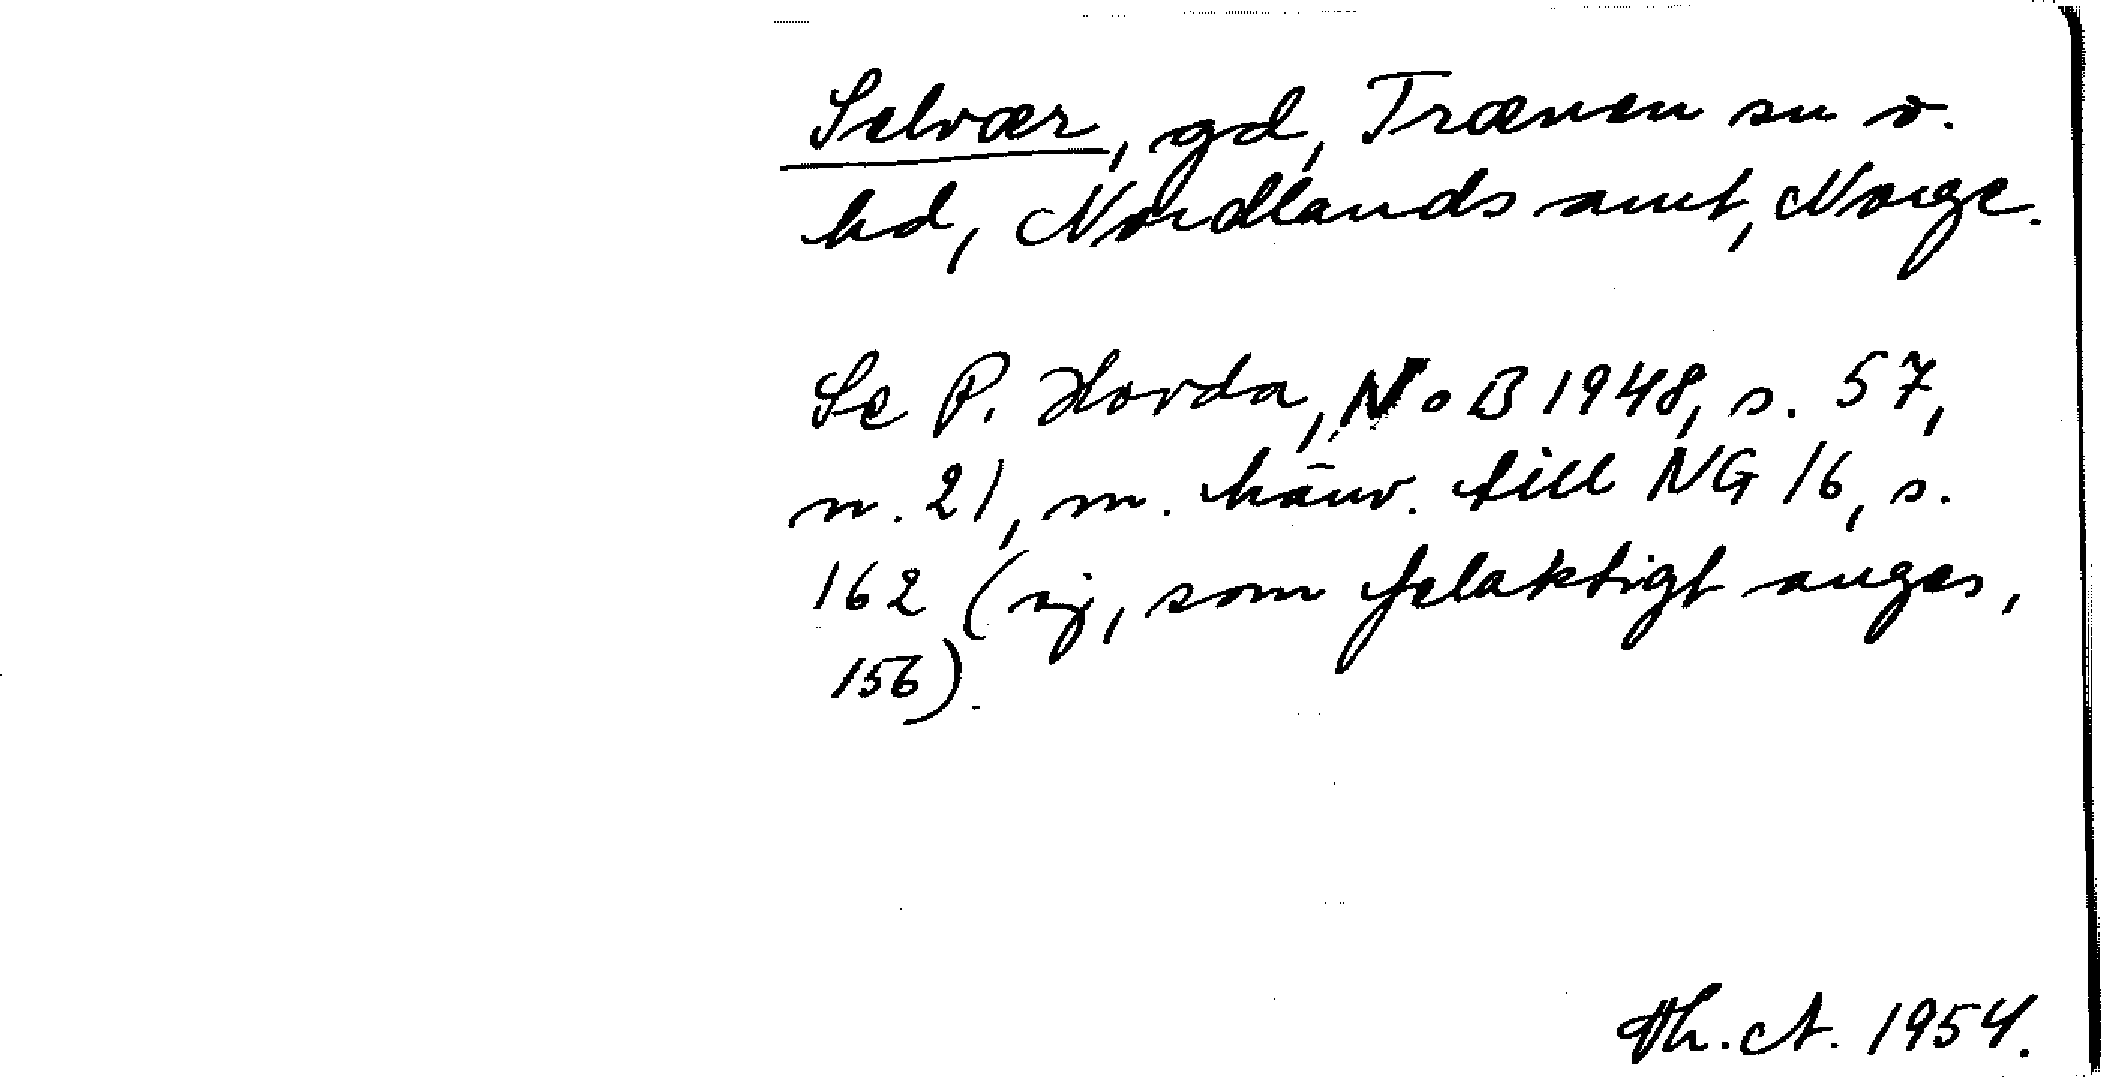 Selvær, gd, Trænen sn o.
hd, Nordlands amt, Norge.
Se P. Hovda, NoB 1948, s. 57,
n. 21, m. hänv. till NG 16, s.
162 (ej, som felaktigt anges,
156).
Th. A. 1954.